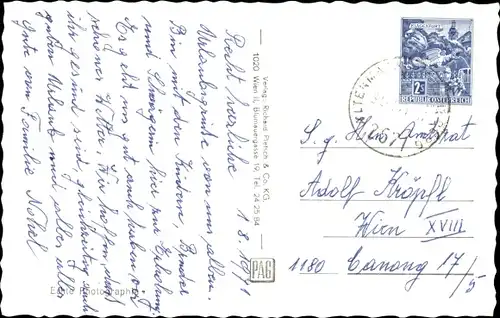 1.8.1971
Recht herzliche
Urlaubsgrüße von uns allen.
Bin mit den Kindern, Bruder
und Schwägerin hier zur Erholung
Es geht uns gut auch haben wir
schönes Wetter. Wir hoffen, daß
ihr gesund seid, gleichzeitig auch
guten Urlaub und alles, alles
Gute von Familie
Echte Photographie
Verlag Richard Pietsch & Co. KG.
1020 Wien II, Blumauergasse 19, Tel. 24 25 84
PAG
2S
REPUBLIK ÖSTERREICH
S. g. Herrn Amtsrat
Adolf Kröpfl
Wien
XVIII
1180 Canong 17/5